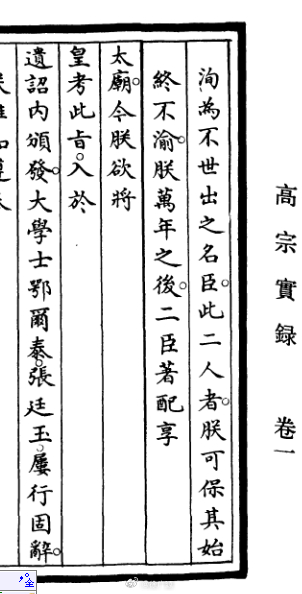 高宗實錄 卷一
洵為不世出之名臣。此二人者。朕可保其始
終不渝。朕萬年之後。二臣著配享
太廟。今朕欲將
皇考此旨。入於
遺詔內頒發。大學士鄂爾泰。張廷玉。屢行固辭。